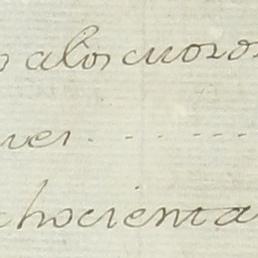 s alos cuoro
ver
chocienta